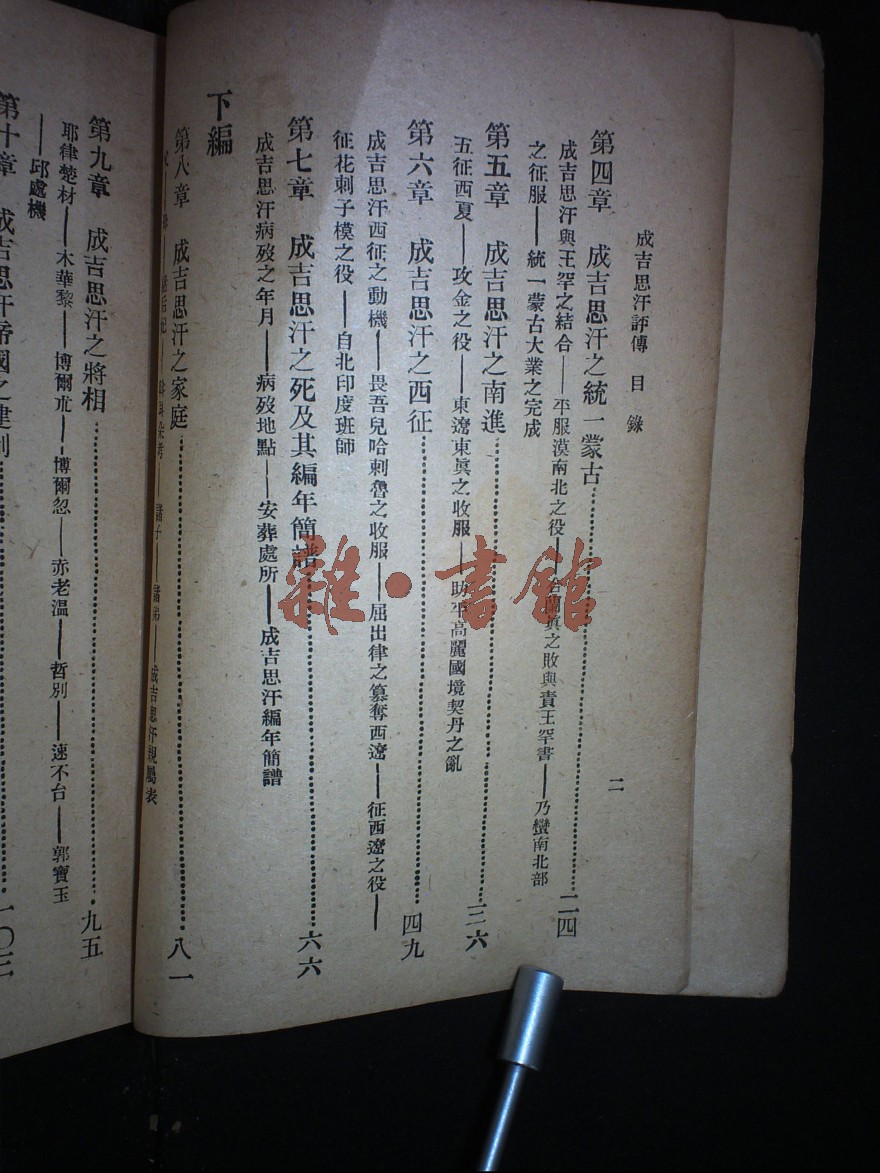 成吉思汗評傳 目錄
二
第四章 成吉思汗之統一蒙古……二四
成吉思汗與王罕之結合——平服漠南北之役——合蘭眞之敗與責王罕書——乃蠻南北部
之征服——統一蒙古大業之完成
第五章 成吉思汗之南進……三六
五征西夏——攻金之役——東遼東眞之收服——助平高麗國境契丹之亂
第六章 成吉思汗之西征……四九
成吉思汗西征之動機——畏吾兒哈剌魯之收服——屈出律之篡奪西遼——征西遼之役——
征花剌子模之役——自北印度班師
第七章 成吉思汗之死及其編年簡譜……六六
成吉思汗病歿之年月——病歿地點——安葬處所——成吉思汗編年簡譜
下編
第八章 成吉思汗之家庭……八一
諸子——諸弟——成吉思汗親屬表
第九章 成吉思汗之將相……九五
耶律楚材——木華黎——博爾朮——博爾忽——赤老溫——哲別——速不台——郭寶玉
——邱處機
第十章 成吉思汗帝國之建制……一〇三
雜·書館